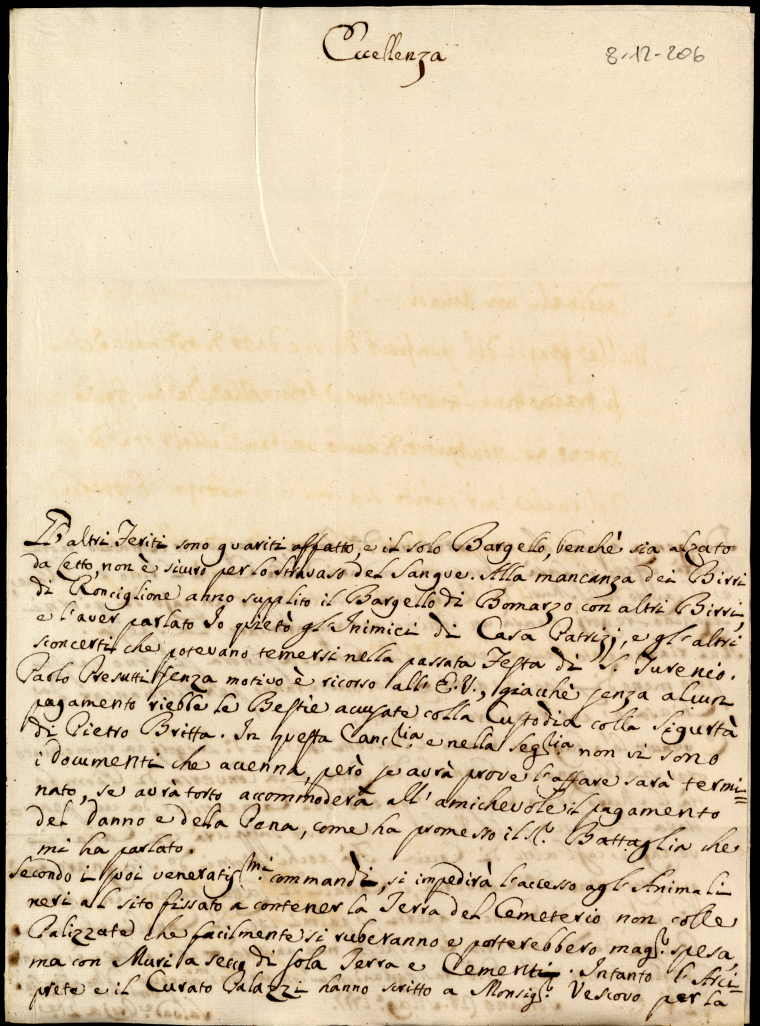 Eccellenza
8-12-206
altri Feriti sono guariti affatto, e il solo Bargello, benchè sia alzato
da Letto, non è sicuro per lo stravaso del Sangue. Alla mancanza dei Birri
di Ronciglione anno supplito il Bargello di Bomarzo con altri Birri,
e l'aver parlato Io quietò gl'Inimici di Casa Patrizj, e gl'altri
sconcerti che potevano temersi nella passata Festa di S.
Paolo Presutti senza motivo è ricorso all'E.V., giacchè senza alcun
pagamento riebbe le Bestie accusate colla Custodia colla Sigurtà
di Pietro Britta. In questa Canc.lia e nella Seg.lia non si sono
i documenti che accenna, però se avrà prove l'affare sarà termi=
nato, se avrà torto accommoderà all'amichevole il pagamento
del danno e della Pena, come ha promesso il S.r Battaglia che
mi ha parlato.
Secondo i suoi veneratis.mi commandi, si impedirà l'accesso agl'Animali
neri al sito fissato a contener la Terra del Cemeterio non colle
Palizzate che facilmente si ruberanno e porterebbero mag.r spesa
ma con Muri a secco di sola Terra e Cementi. Intanto l'Arci=
prete e il Curato Palazzi hanno scritto a Monsig.r Vescovo per la